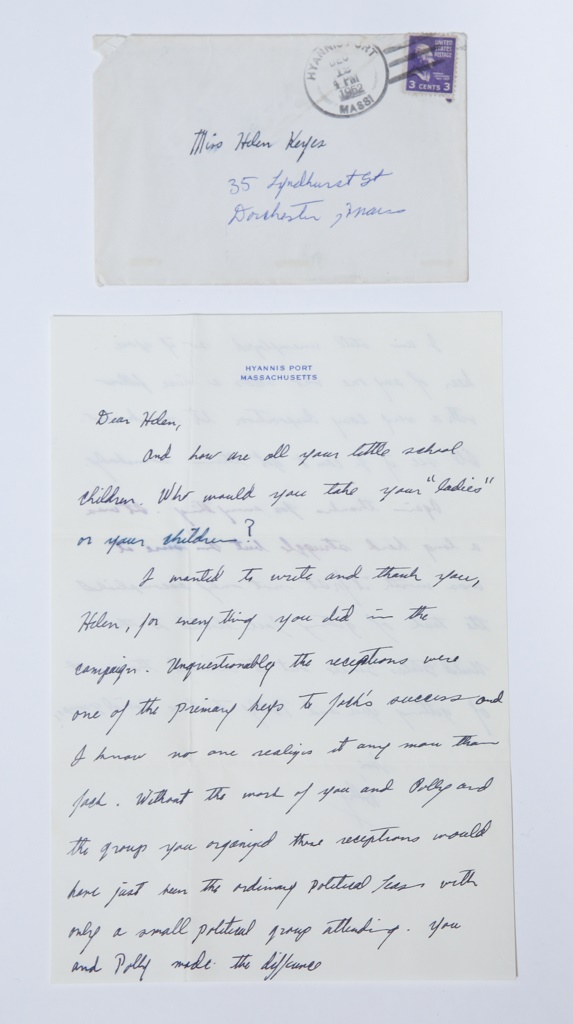 HYANNIS PORT
DEC
18
4 PM
1952
MASS.
UNITED STATES
POSTAGE
3 CENTS 3
Miss Helen Keyes
35 Lyndhurst St
Dorchester, Mass
HYANNIS PORT
MASSACHUSETTS
Dear Helen,
And how are all your little school
children. Who would you take your "ladies"
or your children?
I wanted to write and thank you,
Helen, for everything you did in the
campaign. Unquestionably the receptions were
one of the primary keys to Jack's success and
I know no one realizes it any more than
Jack. Without the work of you and Polly and
the group you organized those receptions would
have just been the ordinary political teas with
only a small political group attending. You
and Polly made the difference